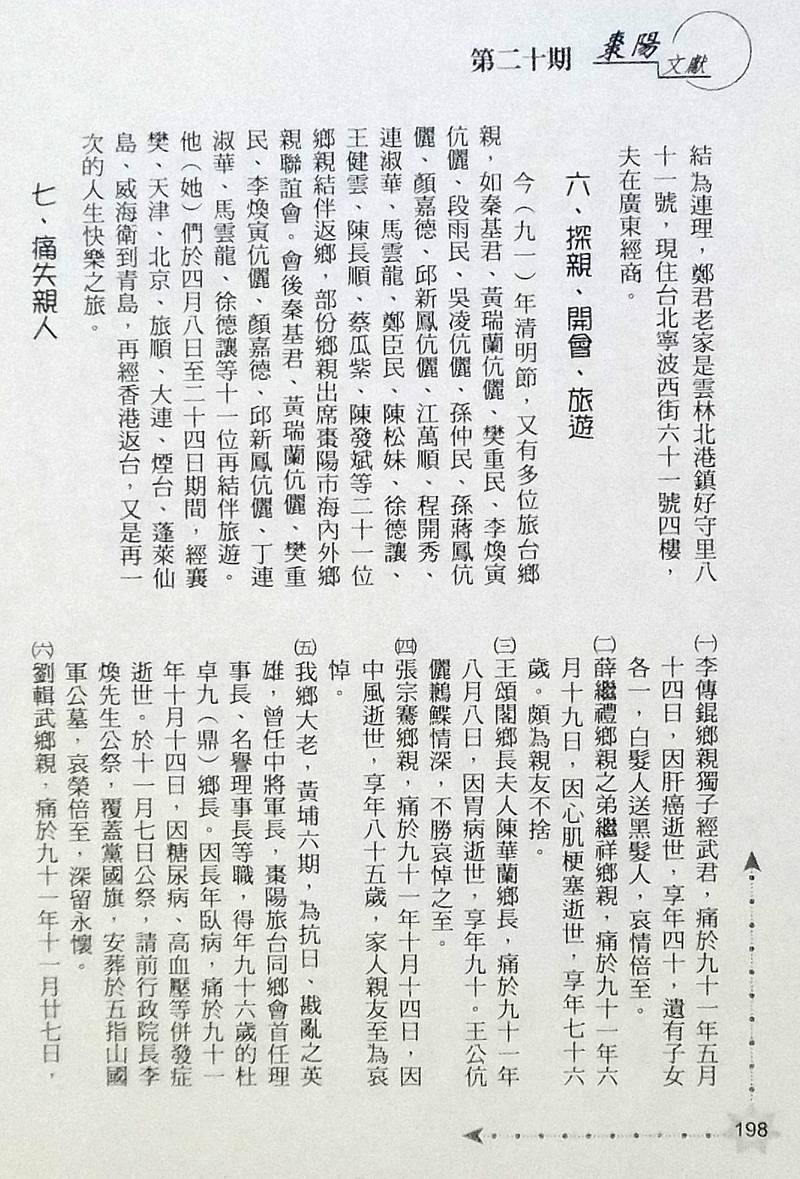 第二十期
棗陽
文獻
結為連理，鄭君老家是雲林北港鎮好守里八
十一號，現住台北寧波西街六十一號四樓，
夫在廣東經商。
六、探親、開會、旅遊
今（九一）年清明節，又有多位旅台鄉
親，如秦基君、黃瑞蘭伉儷、樊重民、李煥寅
伉儷、段雨民、吳凌伉儷、孫仲民、孫蔣鳳伉
儷、顏嘉德、邱新鳳伉儷、江萬順、程開秀、
連淑華、馬雲龍、鄭臣民、陳松妹、徐德讓、
王健雲、陳長順、蔡瓜紫、陳發斌等二十一位
鄉親結伴返鄉，部份鄉親出席棗陽市海內外鄉
親聯誼會。會後秦基君、黃瑞蘭伉儷、樊重
民、李煥寅伉儷、顏嘉德、邱新鳳伉儷、丁連
淑華、馬雲龍、徐德讓等十一位再結伴旅遊。
他（她）們於四月八日至二十四日期間，經襄
樊、天津、北京、旅順、大連、煙台、蓬萊仙
島、威海衛到青島，再經香港返台，又是再一
次的人生快樂之旅。
七、痛失親人
㈠李傳錕鄉親獨子經武君，痛於九十一年五月
十四日，因肝癌逝世，享年四十，遺有子女
各一，白髮人送黑髮人，哀情倍至。
㈡薛繼禮鄉親之弟繼祥鄉親，痛於九十一年六
月十九日，因心肌梗塞逝世，享年七十六
歲。頗為親友不捨。
㈢王頌閣鄉長夫人陳華蘭鄉長，痛於九十一年
八月八日，因胃病逝世，享年九十。王公伉
儷鶼鰈情深，不勝哀悼之至。
㈣張宗騫鄉親，痛於九十一年十月十四日，因
中風逝世，享年八十五歲，家人親友至為哀
悼。
㈤我鄉大老，黃埔六期，為抗日、戡亂之英
雄，曾任中將軍長，棗陽旅台同鄉會首任理
事長、名譽理事長等職，得年九十六歲的杜
卓九（鼎）鄉長。因長年臥病，痛於九十一
年十月十四日，因糖尿病、高血壓等併發症
逝世。於十一月七日公祭，請前行政院長李
煥先生公祭，覆蓋黨國旗，安葬於五指山國
軍公墓，哀榮倍至，深留永懷。
㈥劉輯武鄉親，痛於九十一年十一月廿七日，
198